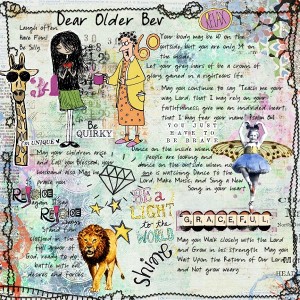 Dear Older Bev
Laugh often
Have Fun!
Be Silly
Your body may be 60 on the
outside, but you are only 34 on
the inside.
Let your grey hairs be a crown of
glory gained in a righteous life
May you continue to say Teach me your
way Lord, that I may rely on your
faithfulness; give me an undivided heart,
that I may fear your name
Be
QUIRKY
UNIQUE
YOU JUST
HAVE TO
BE BRAVE
May your children arise
and call you blessed, your
husband also May he
praise you
Dance on the inside when
people are looking and
dance on the outside when no
one is watching. Dance to the
Lord, Make Music, and Sing a New
Song in your heart
Rejoice
Rejoice
BE A
LIGHT
to the
WORLD
Shine
GRACEFUL
Stand
clothed in the
full armor of
God, ready to do
battle with evil
desires and forces
May you Walk closely with the Lord
and Grow in his Strength. May you
Wait Upon the Return of Our Lord
and Not grow weary